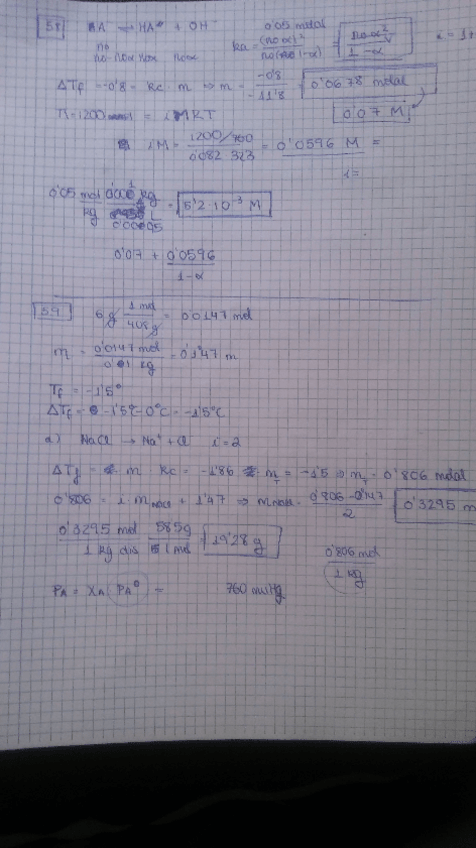 58 HA⁺ + OH⁻ 0'05 molal
n₀
ka = (n₀α)² / n₀(1-α) = n₀α²/V / 1-α
ΔTf = -0'8 = -kc · m ⇒ m = -0'8 / -11'8 = 0'0678 molal
0'07 M
π = 1200 = iMRT
iM = 1200/760 / 0'082 · 323 = 0'0596 M =
i =
0'05 mol / kg = 5'2·10⁻³ M
0'07 + 0'0596 / 1-α
59 6g · 1 mol / 408 g = 0'0147 mol
m = 0'0147 mol / 0'01 kg = 0'147 m
Tf = -1'5°
ΔTf = -1'5º-0ºC = -1'5ºC
a) NaCl → Na⁺ + Cl i = 2
ΔTf = m · kc = -1'86 · mT = -1'5 ⇒ mT = 0'806 molal
0'806 = i · mNaCl + 1'47 ⇒ mNaCl = 0'806 - 0'147 / 2 = 0'3295 m
0'3295 mol / 1 kg dis · 58'5g / 1 mol = 19'28 g
0'806 mol / 1 kg
PA = XA (PA°) = 760 mmHg